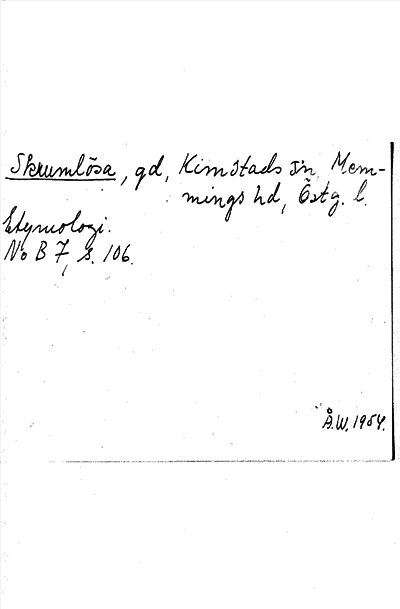 Skrumlösa, gd, Kimstads sn, Mem-
mings hd, Östg. l.
Etymologi.
No B 7, s. 106.
Å.W. 1954.